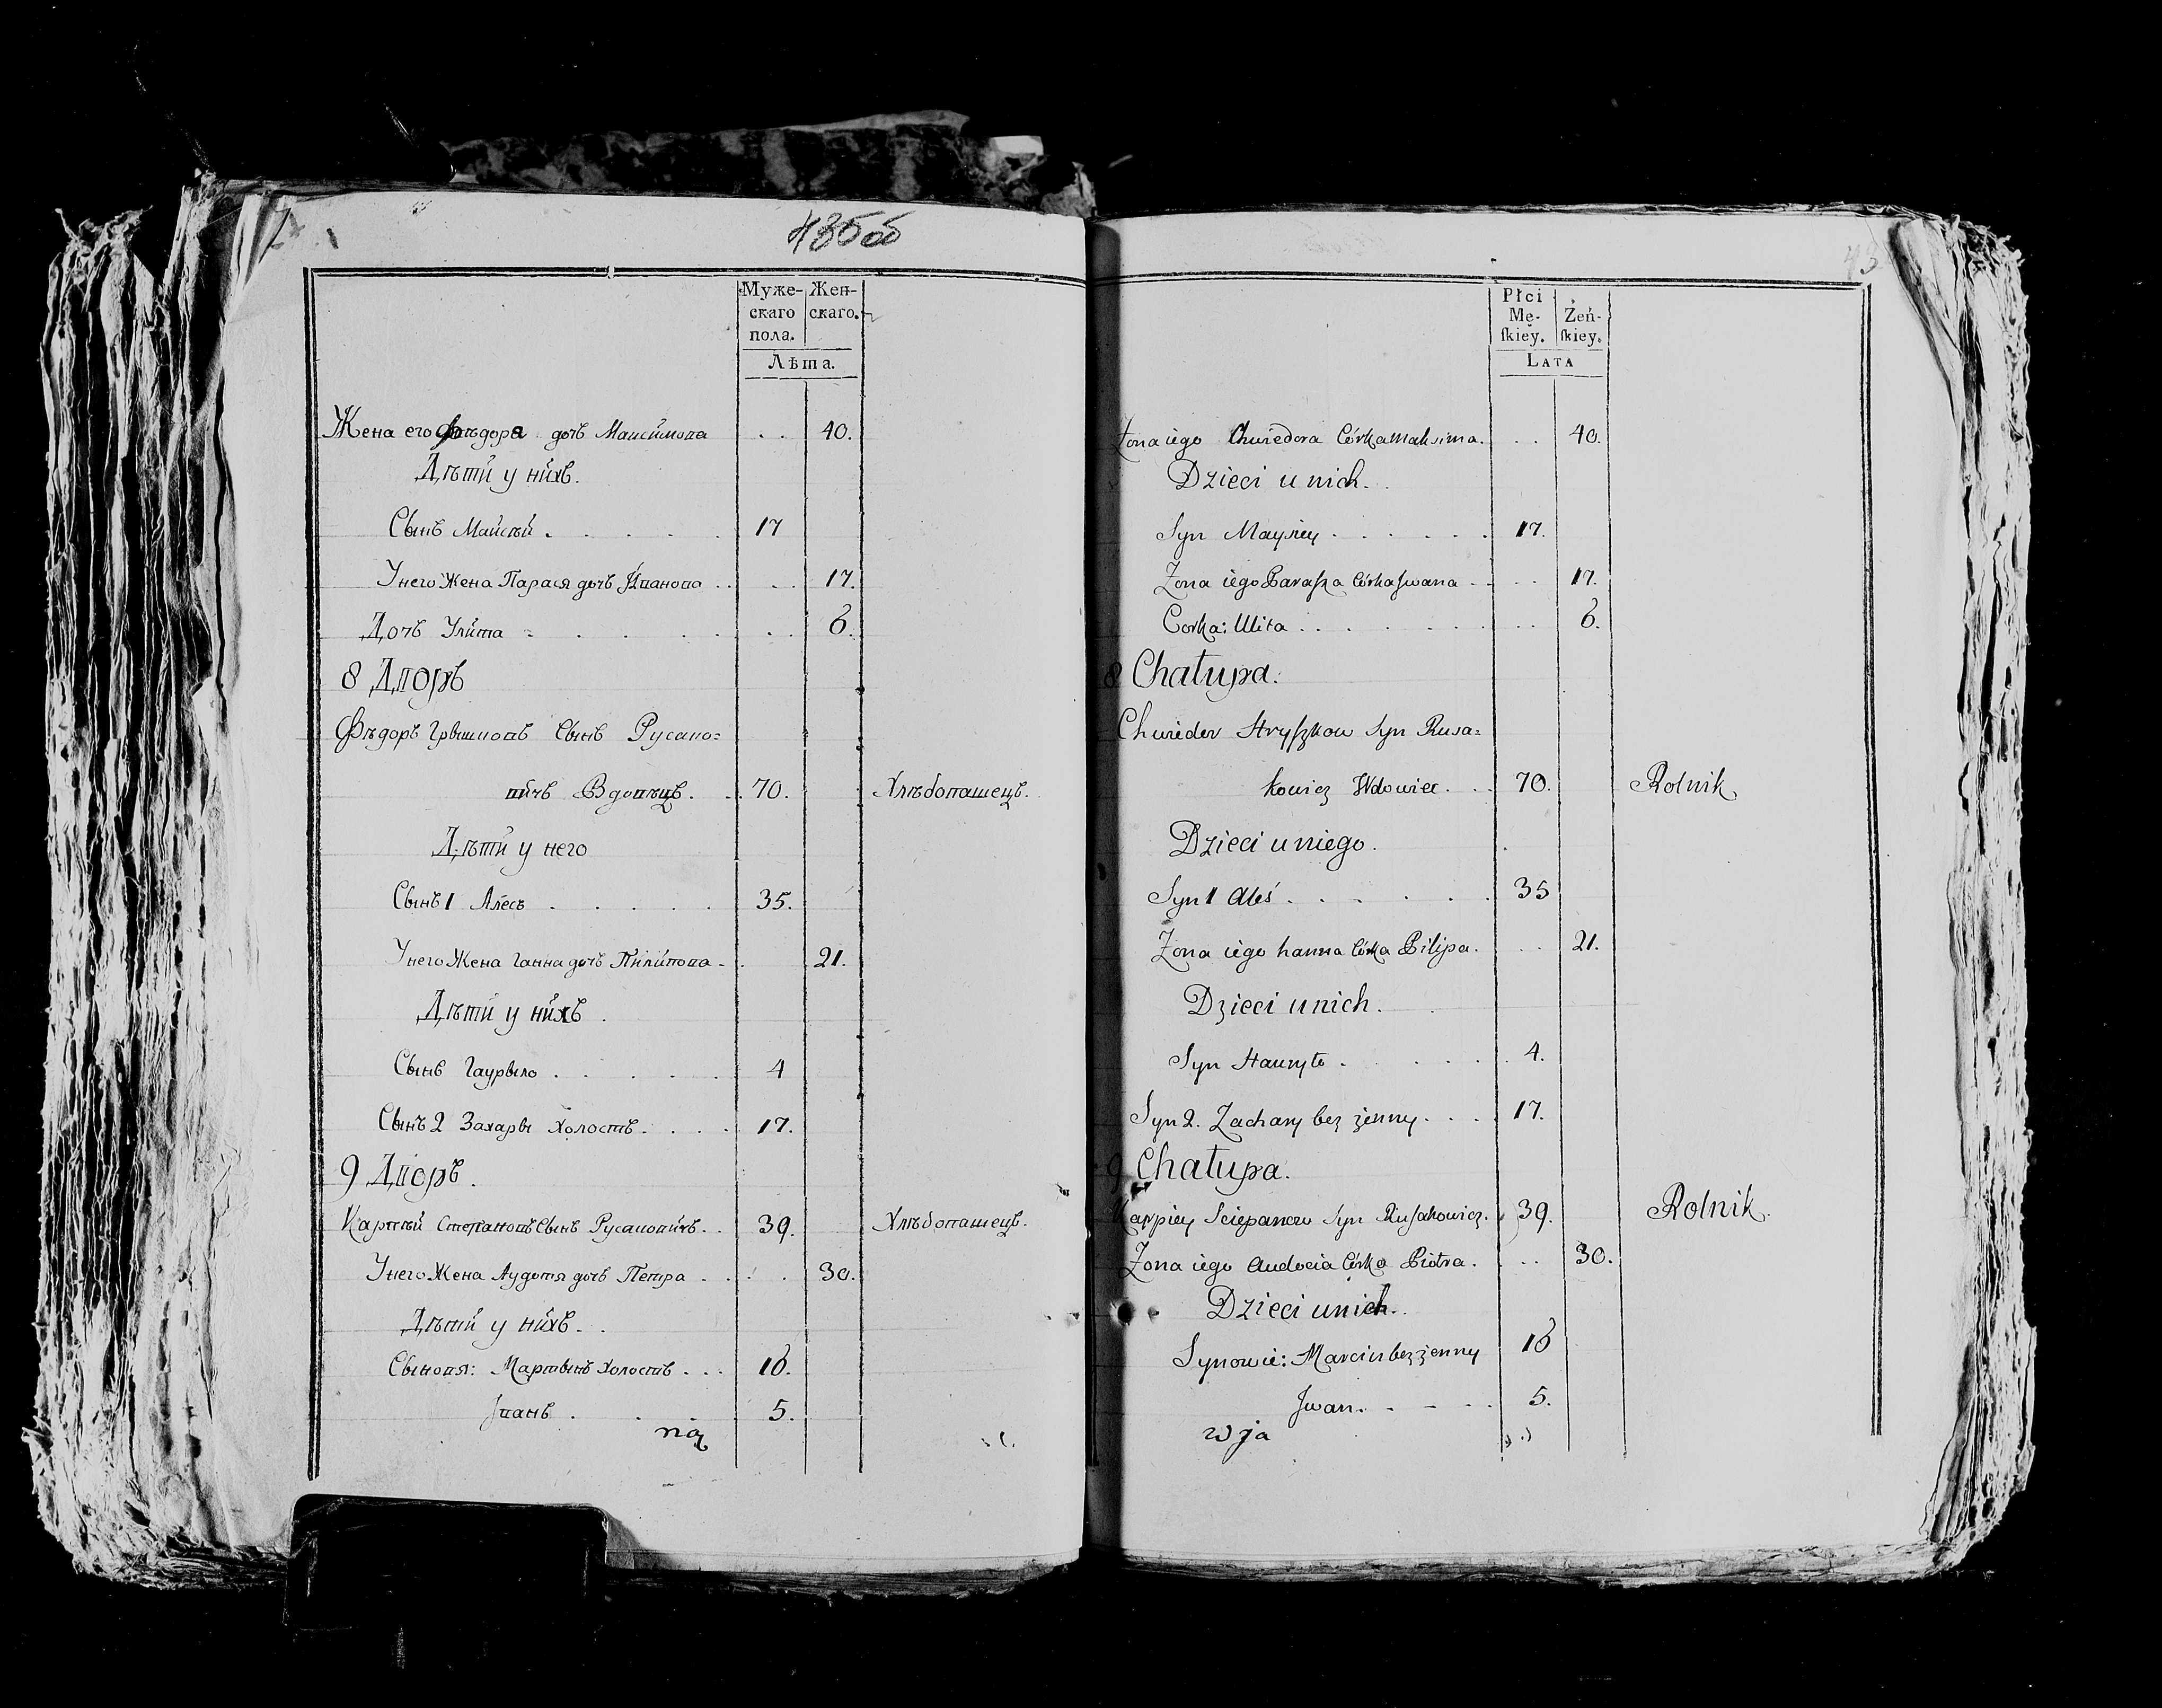 435 об
Муже-
скаго
пола.
Жен-
скаго.
Лѣта.
Жена его Фѣдора дочь Максимова . . 40.
Дѣти у нихъ.
Сынъ Майсѣй . . . . . 17
У него Жена Парася дочь Иванова . . . . 17.
Дочь Улита . . . . . . . 6.
8 Дворъ
Фѣдоръ Грышковъ Сынъ Русако=
вичъ Вдовѣцъ. . . 70. Хлѣбопашецъ.
Дѣти у него
Сынъ 1 Алесь . . . . . 35.
У него Жена Ганна дочь Пилипова . . 21.
Дѣти у нихъ .
Сынъ Гаурыло . . . . . 4
Сынъ 2 Захары Холостъ. . . . 17.
9 Дворъ.
Карпѣй Степановъ Сынъ Русаковичъ. . 39. Хлѣбопашецъ.
У него Жена Аудотя дочь Петра . . . . 30.
Дѣти у нихъ. .
Сыновя: Мартынъ Холостъ . . . 16.
Иванъ . . . . 5.
na
Płci
Mę-
ſkiey.
Żeń-
ſkiey.
LATA
Zona iego Chwiedora Córka Maksima. . . 40.
Dzieci u nich. .
Syn Maysiey . . . . . . 17.
Zona iego Paraska Córka Jwana . . . . 17.
Corka: Ulita . . . . . . . . 6.
8 Chałupa.
Chwieder Hryſzkow Syn Rusa=
kowicz Wdowiec . . . 70. Rolnik
Dzieci u niego .
Syn 1 Aleś . . . . . . 35
Zona iego hanna Córka Pilipa. . . 21.
Dzieci u nich .
Syn Hauryło . . . . . . 4.
Syn 2. Zachary bez żenny . . . 17.
9 Chałupa.
Karpiey Sciepanow Syn Ruſakowicz. 39. Rolnik.
Zona iego Audocia Córka Piotra . . . 30.
Dzieci u nich. .
Synowie: Marcin bez żenny 16
Jwan. . . . . 5.